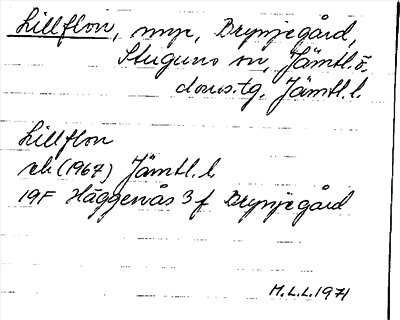 Lillflon, myr, Brynjegård,
Stuguns sn, Jämtl. ö.
doms.tg, Jämtl. l.
Lillflon
rek (1967) Jämtl. l
19F Häggenås 3 f Brynjegård
M.L.L. 1971